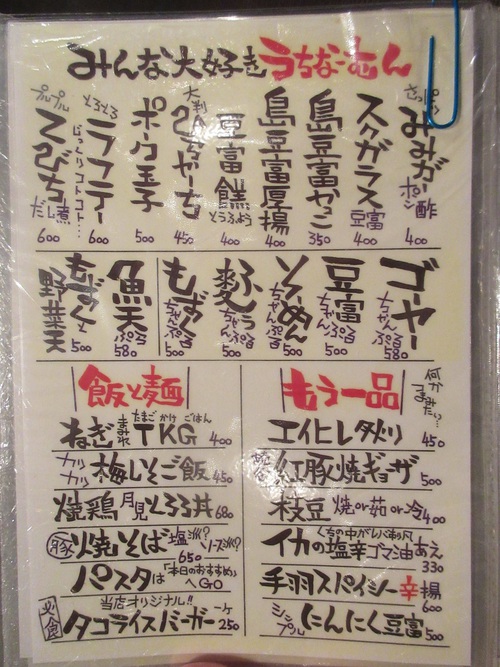 みんな大好きうちなーむん
さっぱり みみガーポン酢 400
スクガラス豆富 400
島豆富やっこ 350
島豆富厚揚 400
豆富餻 とうふよう 400
大判 ひらやーち 450
ポーク玉子 500
とろとろ ラフテー じっくりコトコト… 600
プルプル てびち だし煮 600
ゴーヤーちゃんぷる 580
豆富ちゃんぷる 500
そーめんちゃんぷる 500
麩ふうちゃんぷる 500
もずくちゃんぷる 500
魚天 580
もずくと野菜天 500
飯と麺
ねぎまみれTKG たまごかけごはん 400
カリカリ梅しそご飯 450
焼鶏月見とろろ丼 680
豚焼そば 塩派?ソース派? 650
パスタは「本日のおすすめ」へGO
必食 当店オリジナル!! タコライスバーガー 一ケ 250
もう一品
何かつまみたい…
エイヒレ炙り 450
紅豚焼ギョーザ 500
枝豆 焼or茹or冷 400
イカの塩辛ゴマ油あえ 330
手羽スパイシー辛揚 600
シンプル にんにく豆富 500